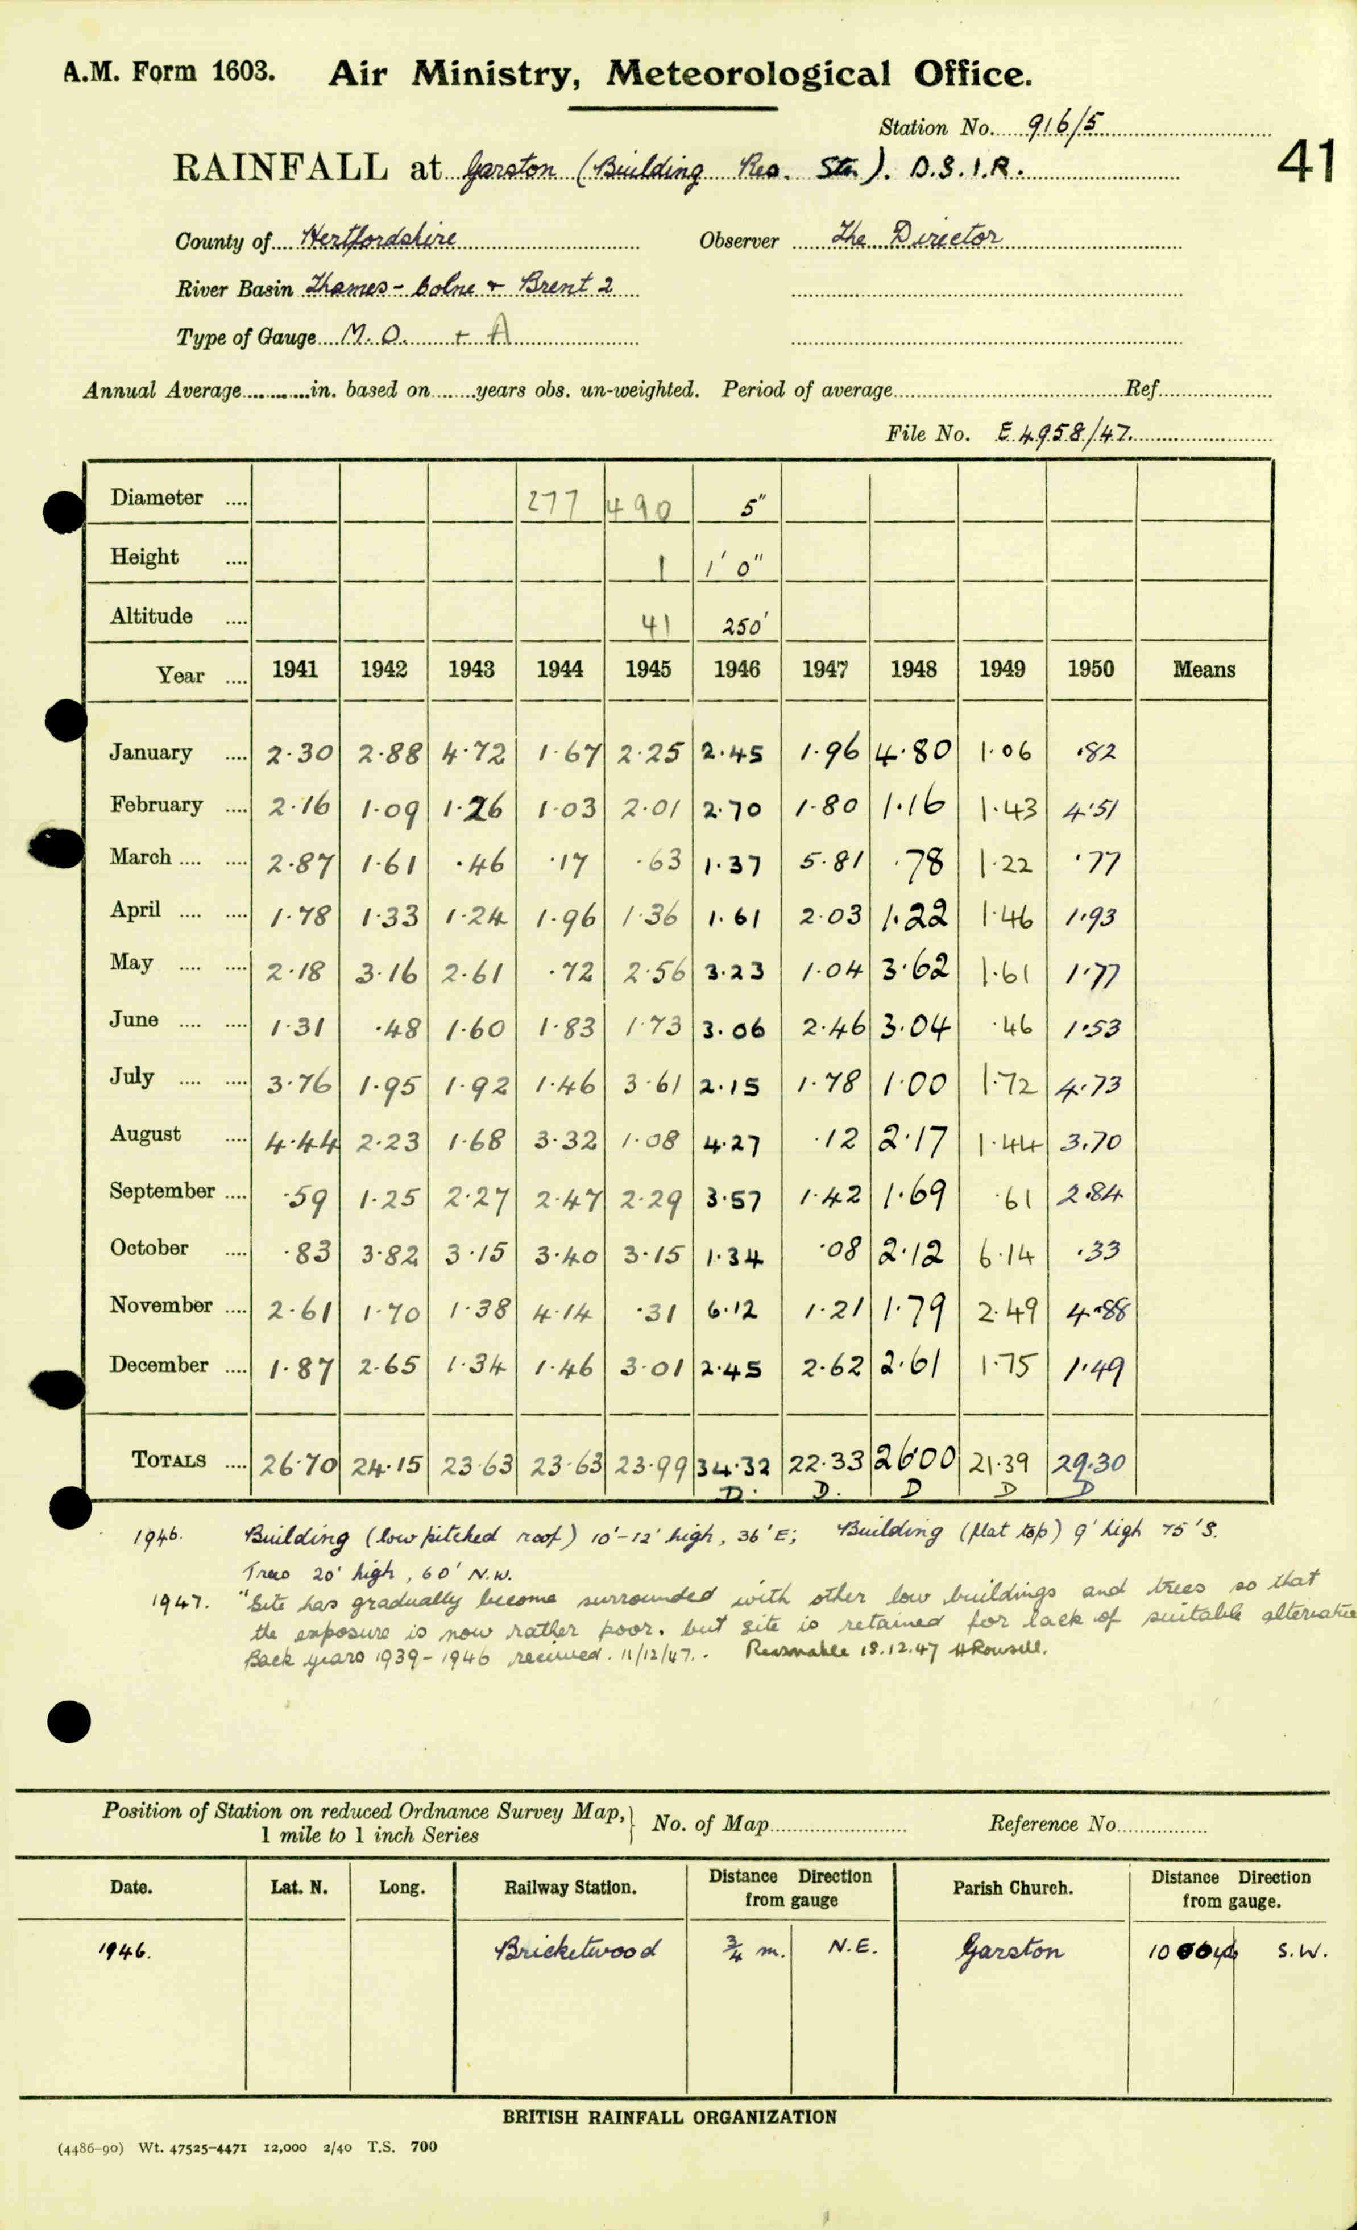 A.M. Form 1603. Air Ministry, Meteorological Office.
Station No. 916/5
RAINFALL at Garston (Building Res. Stn.). D.S.I.R.
41
County of Hertfordshire Observer The Director
River Basin Thames - Colne + Brent 2
Type of Gauge M.O. + A
Annual Average in. based on years obs. un-weighted. Period of average Ref.
File No. E 4958/47
Diameter 277 490 5"
Height 1 1' 0"
Altitude 41 250'
Year 1941 1942 1943 1944 1945 1946 1947 1948 1949 1950 Means
January 2.30 2.88 4.72 1.67 2.25 2.45 1.96 4.80 1.06 .82
February 2.16 1.09 1.26 1.03 2.01 2.70 1.80 1.16 1.43 4.51
March 2.87 1.61 .46 .17 .63 1.37 5.81 .78 1.22 .77
April 1.78 1.33 1.24 1.96 1.36 1.61 2.03 1.22 1.46 1.93
May 2.18 3.16 2.61 .72 2.56 3.23 1.04 3.62 1.61 1.77
June 1.31 .48 1.60 1.83 1.73 3.06 2.46 3.04 .46 1.53
July 3.76 1.95 1.92 1.46 3.61 2.15 1.78 1.00 1.72 4.73
August 4.44 2.23 1.68 3.32 1.08 4.27 .12 2.17 1.44 3.70
September .59 1.25 2.27 2.47 2.29 3.57 1.42 1.69 .61 2.84
October .83 3.82 3.15 3.40 3.15 1.34 .08 2.12 6.14 .33
November 2.61 1.70 1.38 4.14 .31 6.12 1.21 1.79 2.49 4.88
December 1.87 2.65 1.34 1.46 3.01 2.45 2.62 2.61 1.75 1.49
TOTALS 26.70 24.15 23.63 23.63 23.99 34.32 22.33 26.00 21.39 29.30
D. D. D D D
1946. Building (low pitched roof) 10'-12' high, 36' E; Building (flat top) 9' high 75' S.
Trees 20' high, 60' N.W.
1947. "Site has gradually become surrounded with other low buildings and trees so that
the exposure is now rather poor, but site is retained for lack of suitable alternative
Back years 1939-1946 received. 11/12/47. Reasonable 18.12.47 HRowsell.
Position of Station on reduced Ordnance Survey Map, 1 mile to 1 inch Series } No. of Map Reference No.
Date. Lat. N. Long. Railway Station. Distance Direction from gauge Parish Church. Distance Direction from gauge.
1946. Bricketwood ¾ m. N.E. Garston S.W.
BRITISH RAINFALL ORGANIZATION
(4486-90) Wt. 47525-4471 12,000 2/40 T.S. 700